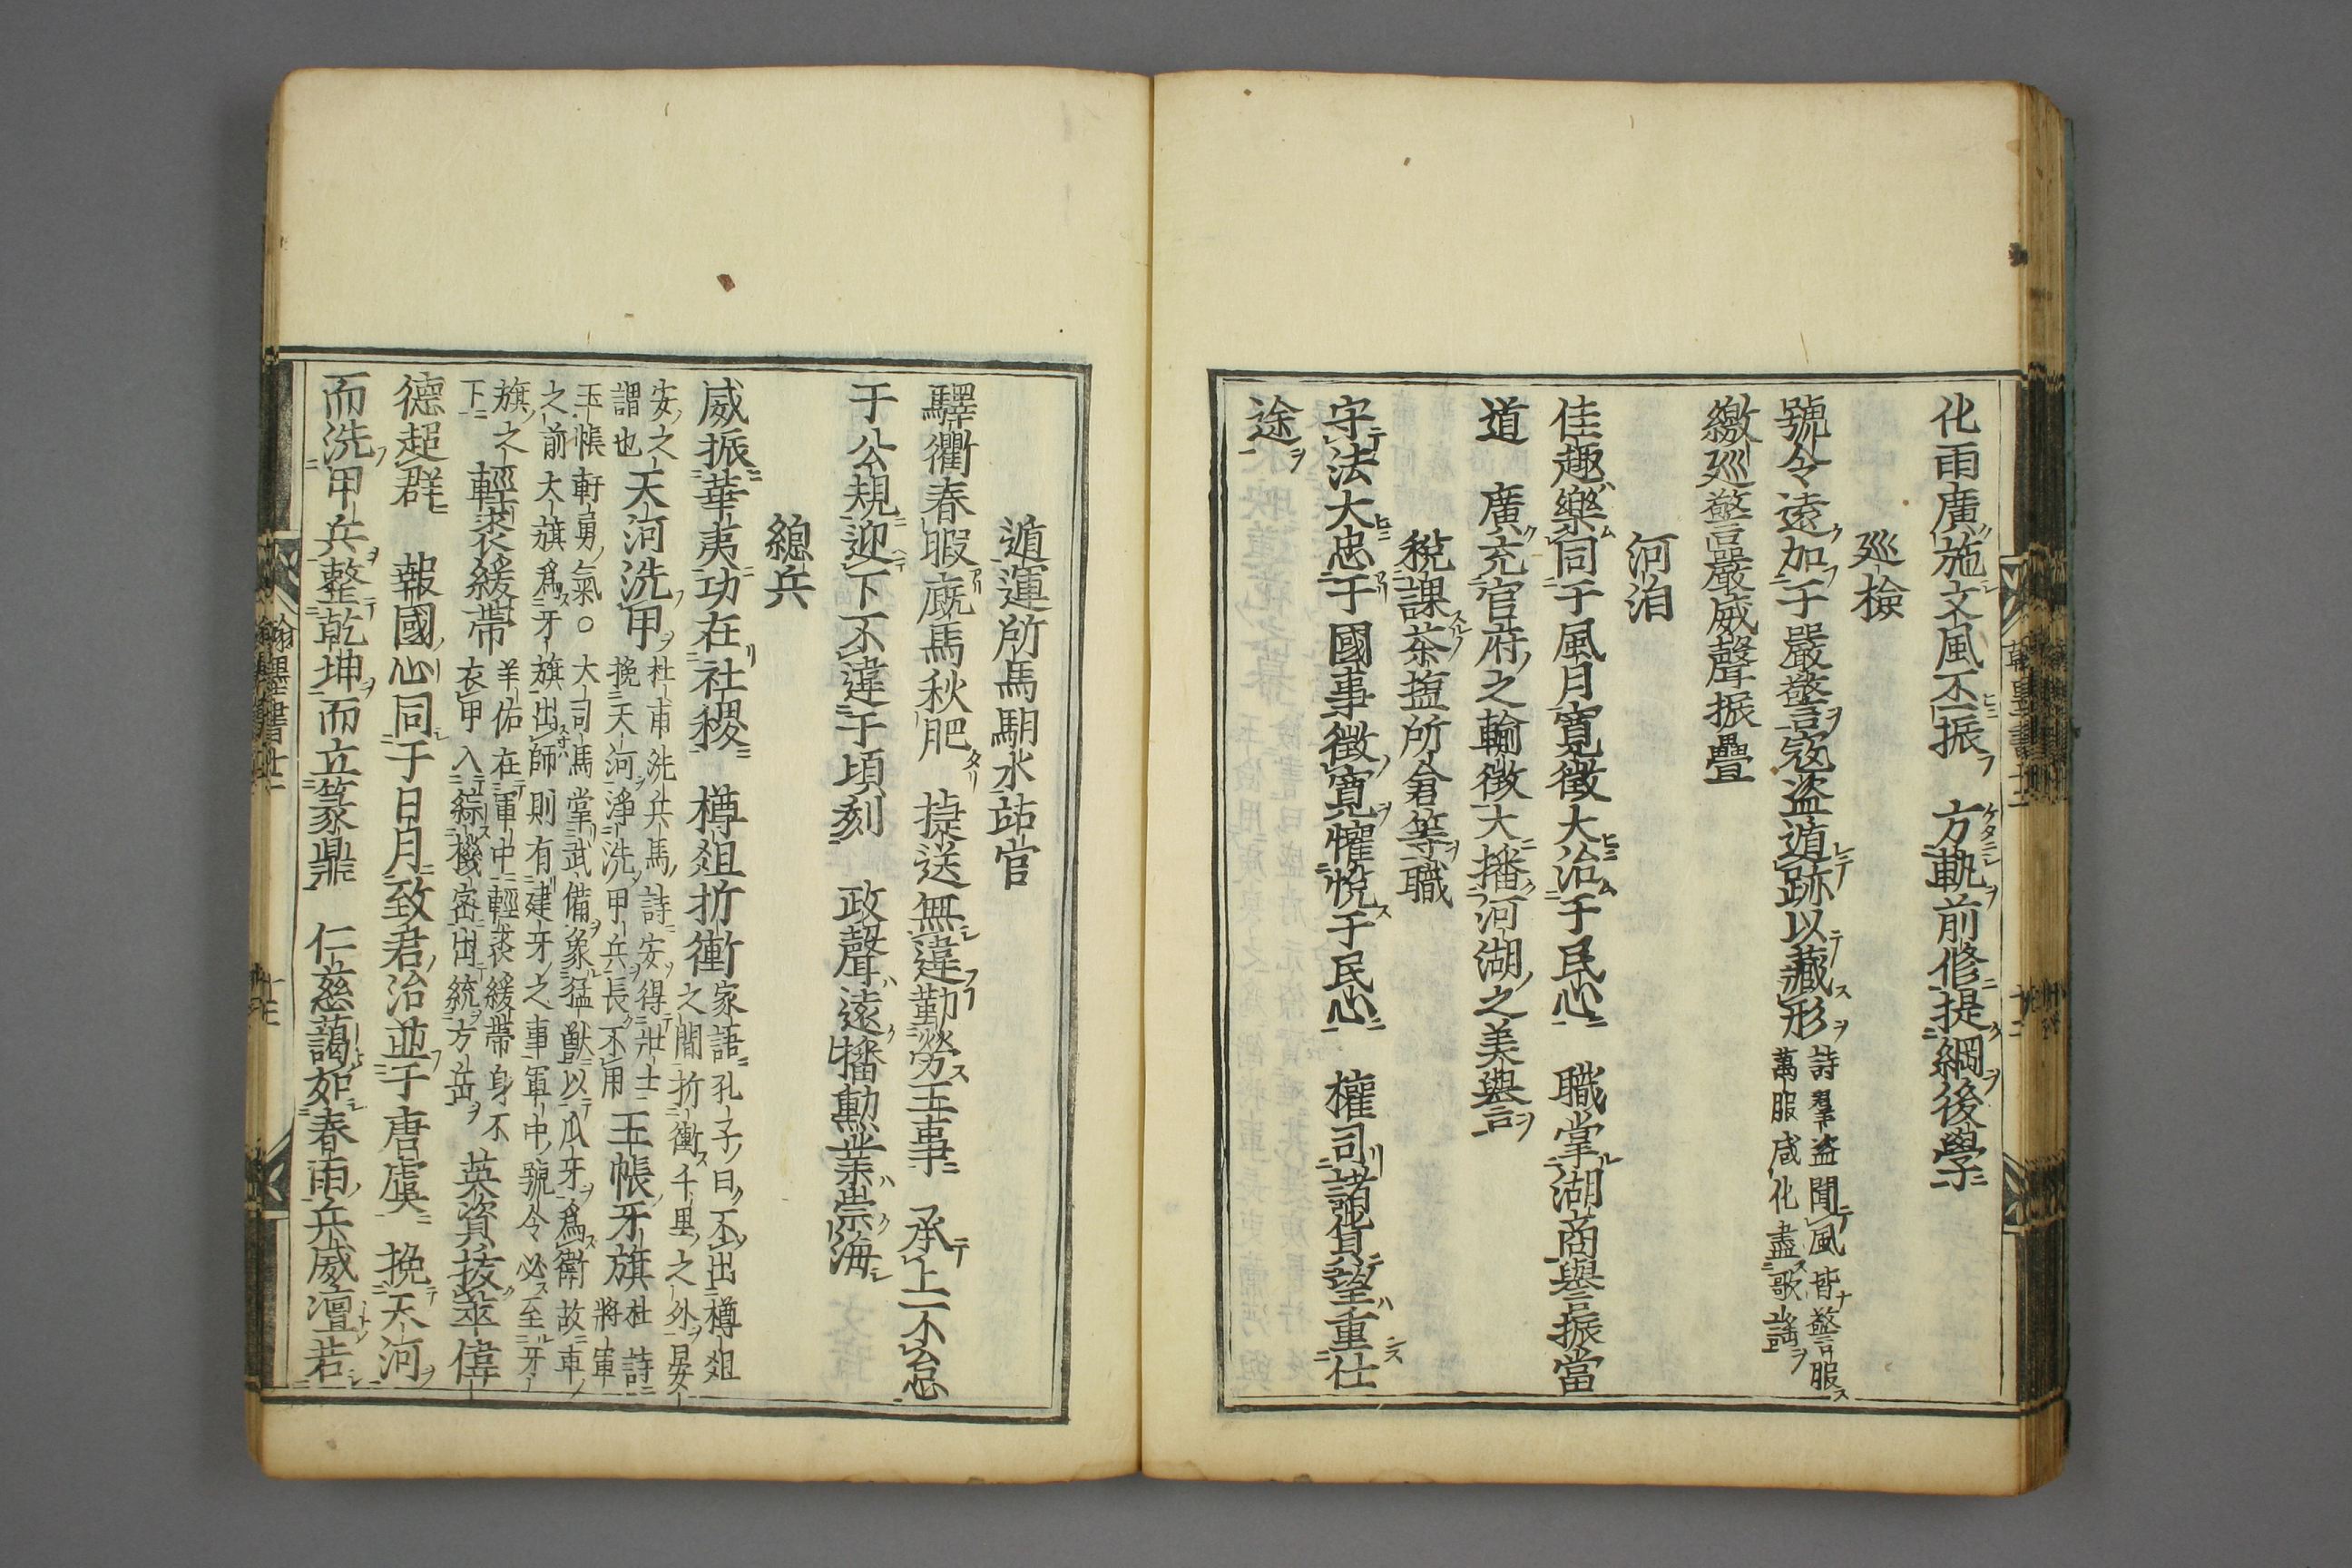 化雨廣施文風丕振　方軌前修提綱後學
巡檢
號令遠加于嚴警寇盜遁跡以藏形 詩羣盜聞風皆警服
萬服咸化盡歌謠
繳廵警嚴威聲振疊
河泊
佳趣樂同于風月寬徵大洽于民心　職掌湖商譽振當
道　廣充官府之輸徴大播河湖之美譽
稅課茶塩所倉等職
守法大忠于國事徵寬懽悅于民心　權司諸貨望重仕
途
遁運所馬駉水站官
驛衢春暇廐馬秋肥　㨗送無違勤勞王事　承上不怠
于公規迎下不違于頃刻　政聲遠播勳業崇海
總兵
威振華夷功在社稷　樽爼折衝 家語孔子曰不出樽爼
之間折衝千里之外晏
安之
謂也 天河洗甲 杜甫洗兵馬詩安得壯士
挽天河淨洗甲兵長不用 玉帳牙旗 杜詩
將軍
玉帳軒勇氣○大司馬掌武備象猛獸以爪牙爲衛故車
之前大旗爲牙旗出師則有建牙之事軍中號令必至牙
旗之
下 輕裘緩帶 羊佑在軍中輕裘緩帶身不
衣甲入綜機密出統方岳 英資拔萃偉
德超群　報國心同于日月致君治並于唐虞　挽天河
而洗甲兵整乾坤而立篆鼎　仁慈藹如春雨兵威澶若